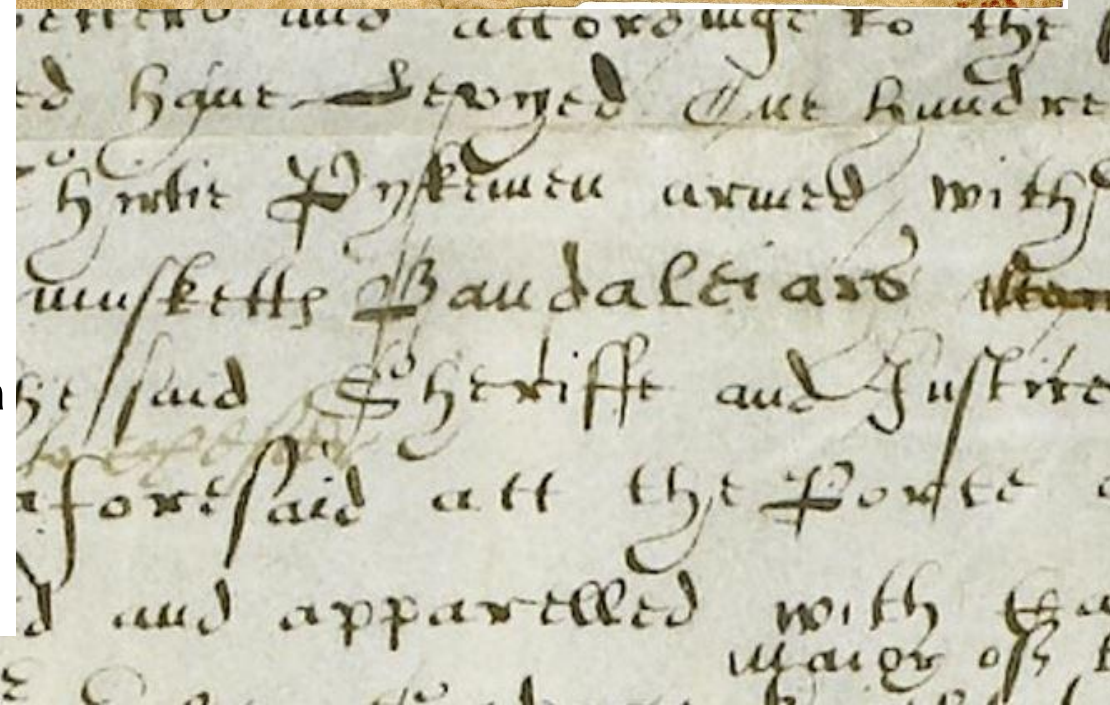 and accordinge to the
haue Levyed One hundre
Thirtie Pykemen armed with
musketts Bandaleiars
he said Sheriffe and Justice
aforesaid att the Porte
and apparelled with
Maior off